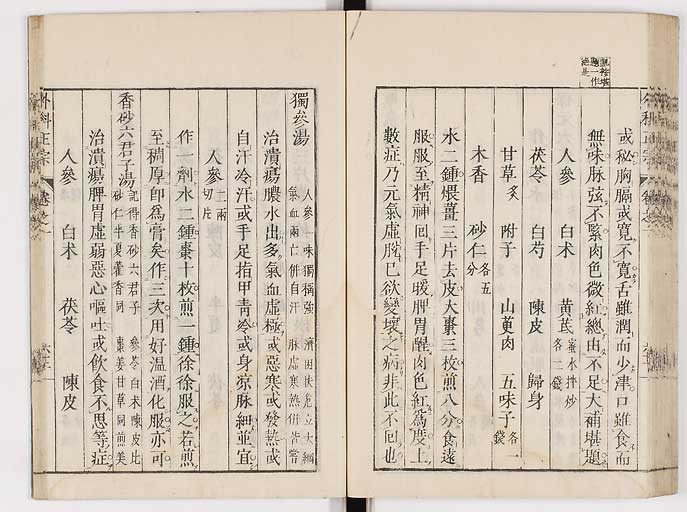 或秘胸膈或寛不寛舌雖潤而少津口雖食而
無味脉弦不緊肉色微紅總由不足大補堪題
人參 白术 黄芪 蜜水拌炒 各二錢
茯苓 白芍 陳皮 歸身
甘草 炙 附子 山茰肉 五味子 各一錢
木香 砂仁 各五分
水二鍾煨薑三片去皮大棗三枚煎八分食遠
服服至精神回手足暖脾胃醒肉色紅為度上
數症乃元氣虛脫已欲變壞之病非此不回也
獨參湯 人參一味獨稱強 氣血兩亡併自汗 脉虛寒熱併皆嘗
治潰瘍膿水出多氣血虛極或惡寒或發熱或
自汗冷汗或手足指甲青冷或身凉脉細並宜
人參 二兩 切片
作一劑水二鍾棗十枚煎一鍾徐徐服之若煎
至稠厚即為膏矣作三次用好温酒化服亦可
香砂六君子湯 記得香砂六君子 參苓白术陳皮比 砂仁半夏藿香同 棗姜甘草同煎美
治潰瘍脾胃虛弱惡心嘔吐或飲食不思等症
人參 白术 茯苓 陳皮
外科正宗 卷之一